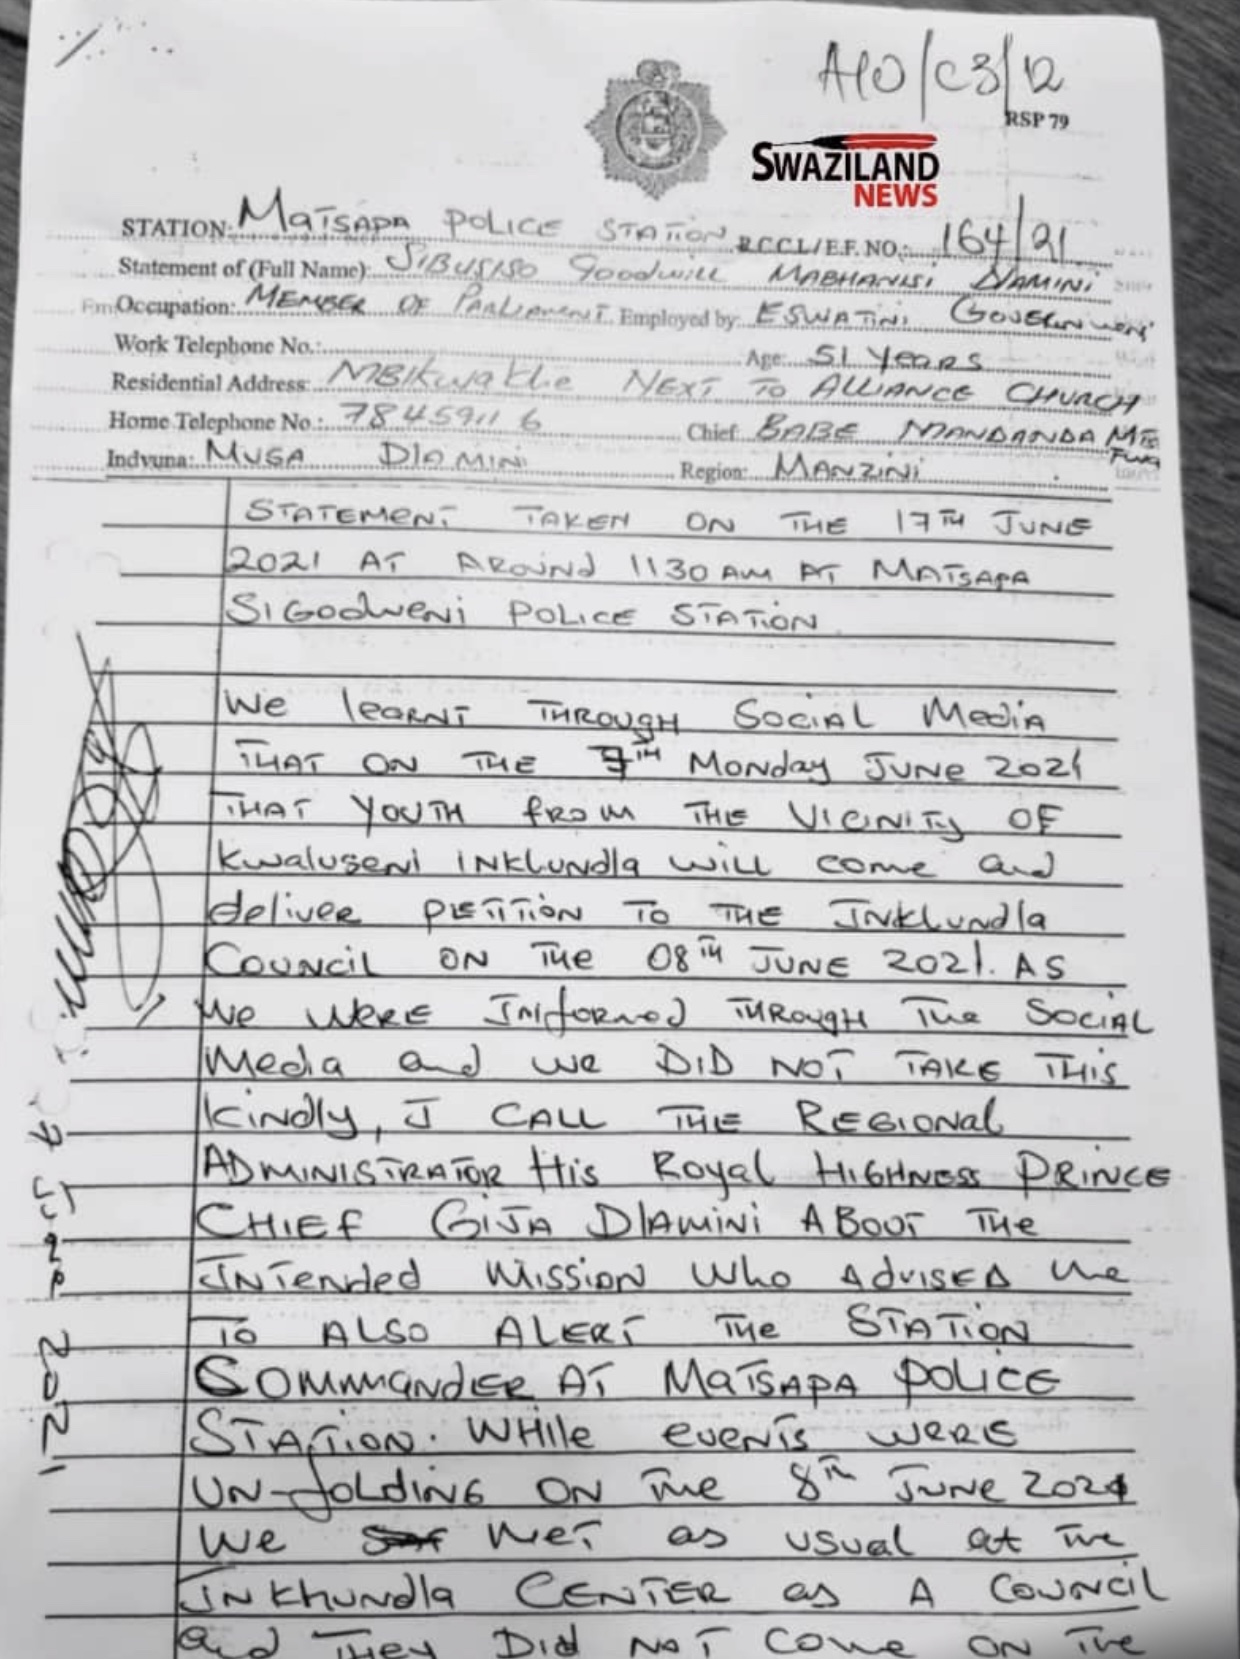 A10/C3/12
RSP 79
SWAZILAND
NEWS
STATION: MATSAPA POLICE STATION R.C.C.I./E.F. NO.: 164/21
Statement of (Full Name): SIBUSISO Goodwill MABHANISI DLAMINI
Occupation: MEMBER OF PARLIAMENT Employed by: ESWATINI GOVERNMENT
Work Telephone No.: Age: 51 YEARS
Residential Address: MBIKWAKHE NEXT TO ALLIANCE CHURCH
Home Telephone No.: 78459116 Chief: BABE MANDANDA
Indvuna: MUSA DLAMINI Region: MANZINI
STATEMENT TAKEN ON THE 17TH JUNE
2021 AT AROUND 1130 AM AT MATSAPA
SIGODWENI POLICE STATION
We learnt THROUGH Social Media
THAT ON THE 7TH Monday JUNE 2021
THAT YOUTH from THE VICINITY OF
Kwaluseni INKLUNDLA will come and
deliver PETITION TO THE INKLUNDLA
COUNCIL ON THE 08TH JUNE 2021. AS
We WERE Informed THROUGH The SOCIAL
Media and we DID NOT TAKE THIS
Kindly, I CALL THE REGIONAL
ADMINISTRATOR His Royal HIGHNESS PRINCE
CHIEF GIJA DLAMINI ABOUT THE
INTENDED MISSION WHO ADVISED me
TO ALSO ALERT THE STATION
COMMANDER AT MATSAPA POLICE
STATION. WHILE events WERE
UN-FOLDING ON The 8TH JUNE 2021
We MET as usual at The
INKHUNDLA CENTER as A COUNCIL
and THEY DID NOT COME ON THE
17 June 2021